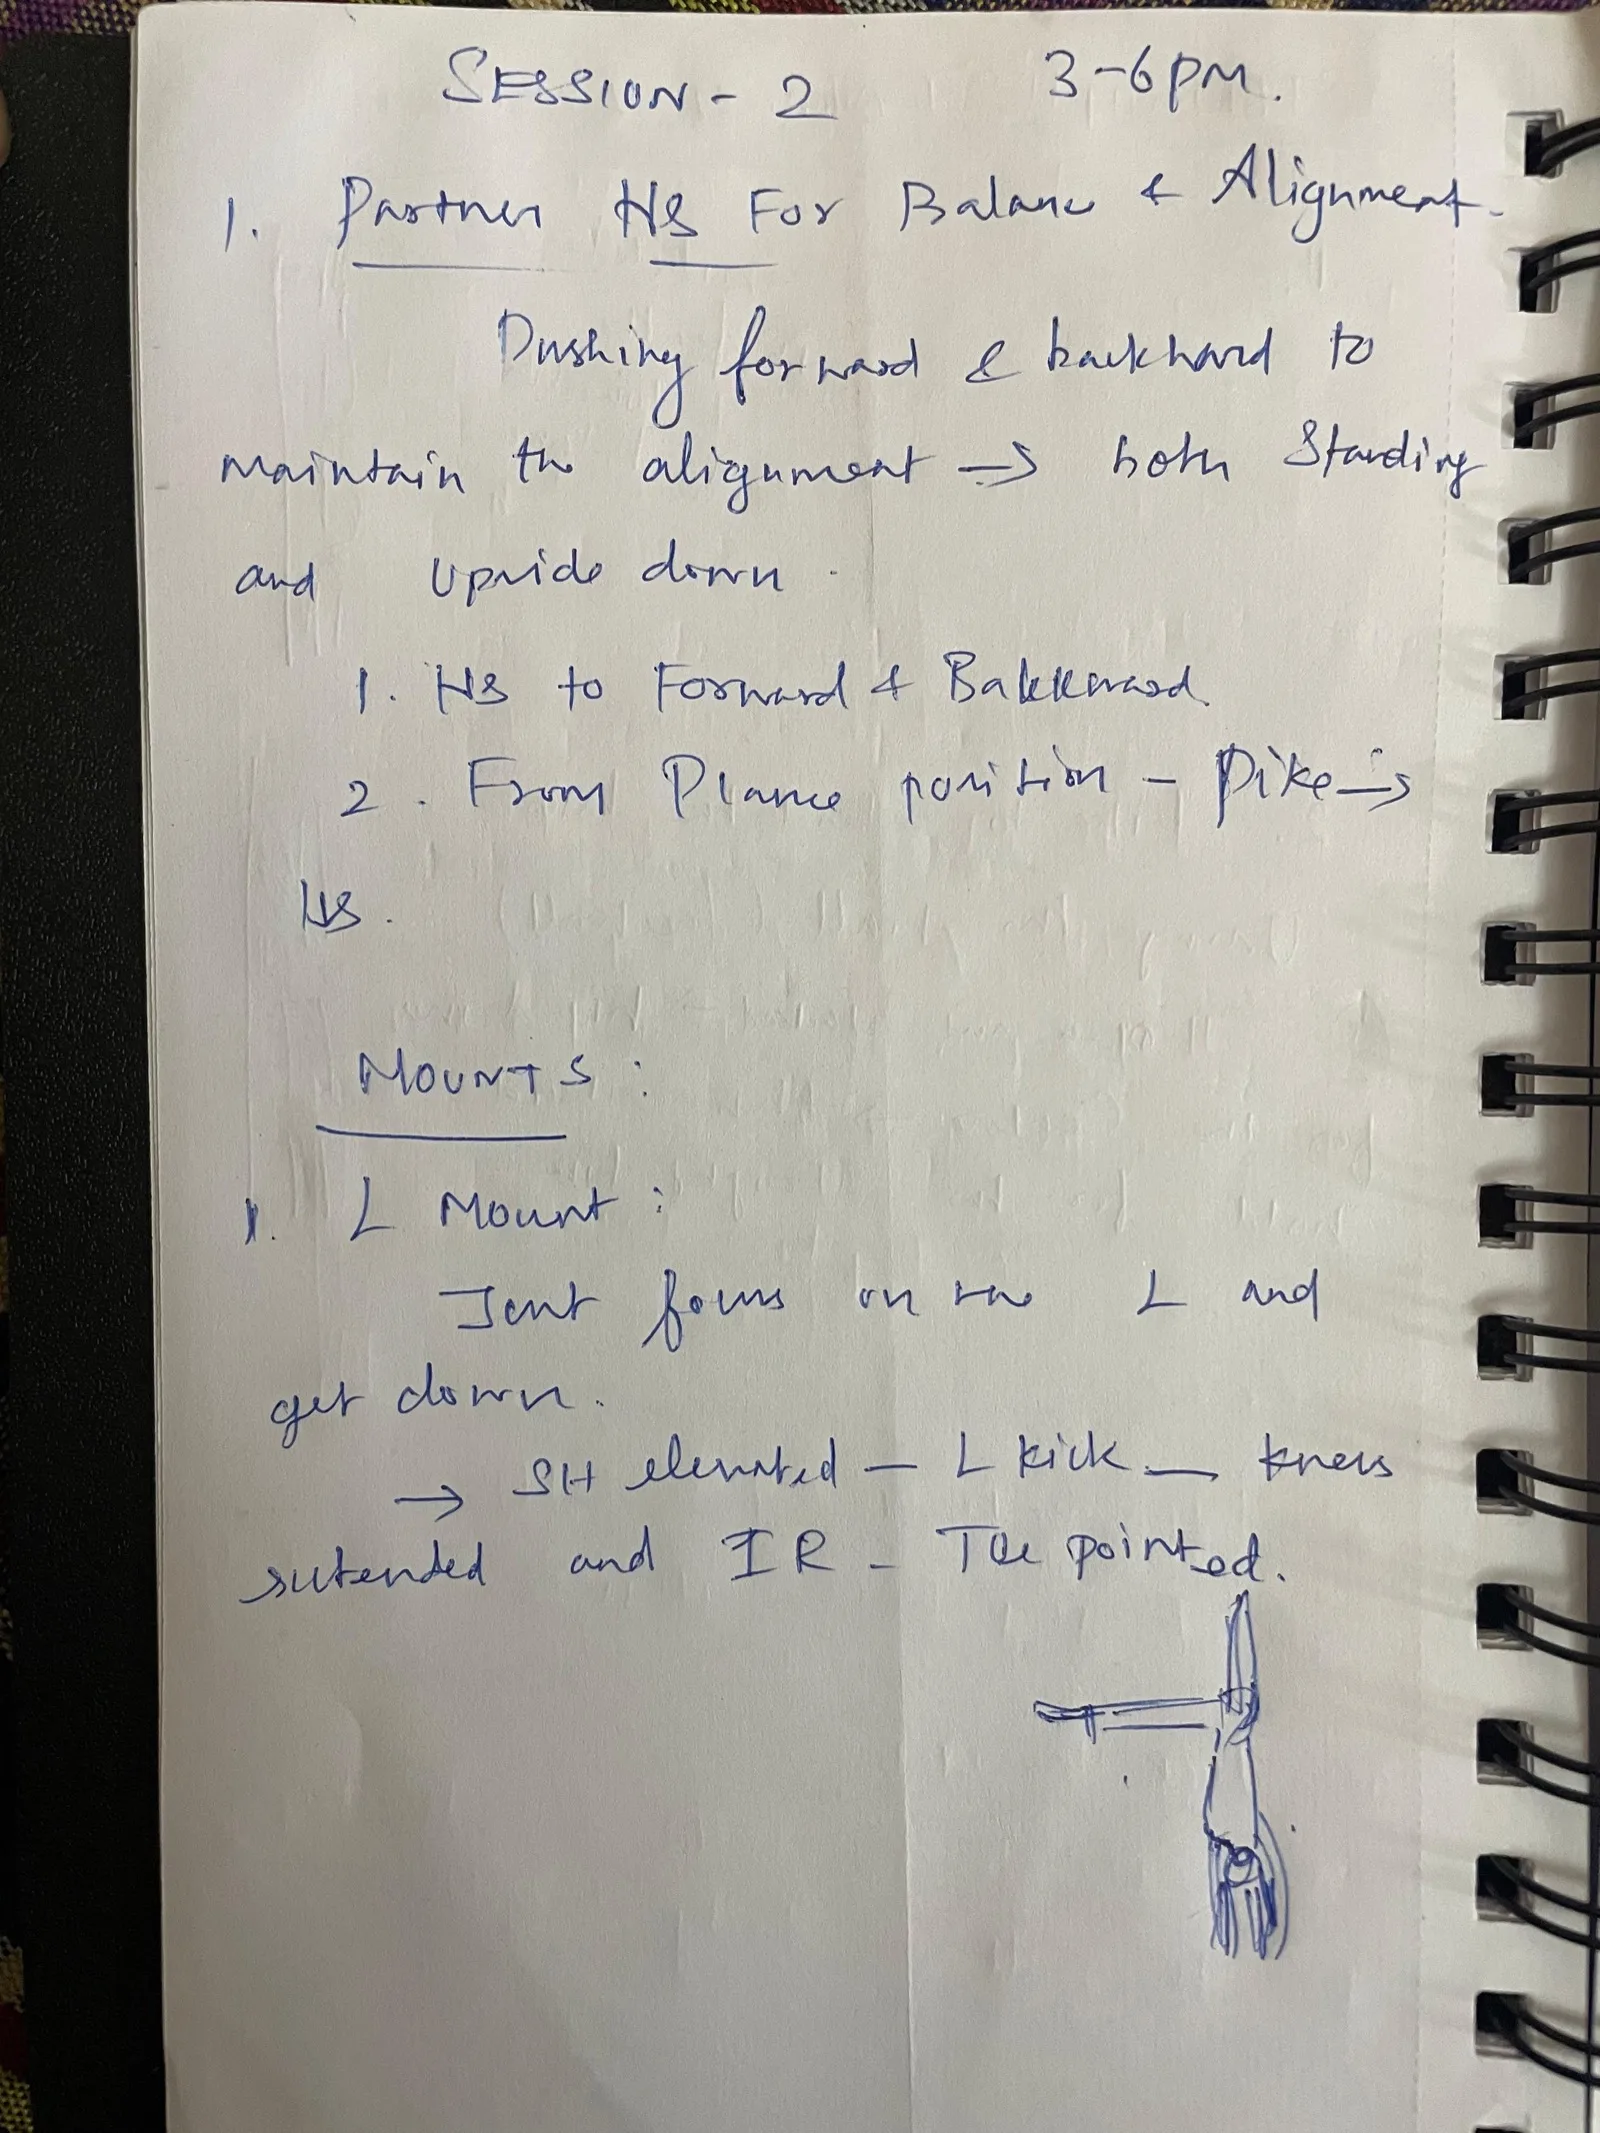 SESSION - 2 3-6PM.
1. Partner HS For Balance & Alignment.
Pushing forward & backward to
maintain the alignment → both Standing
and Upside down.
1. HS to Forward & Bakkward
2. From Plance position - Pike →
HS.
MOUNTS :
1. L Mount :
Just focus on the L and
get down.
→ SH elevated - L kick - knees
extended and IR - Toe pointed.